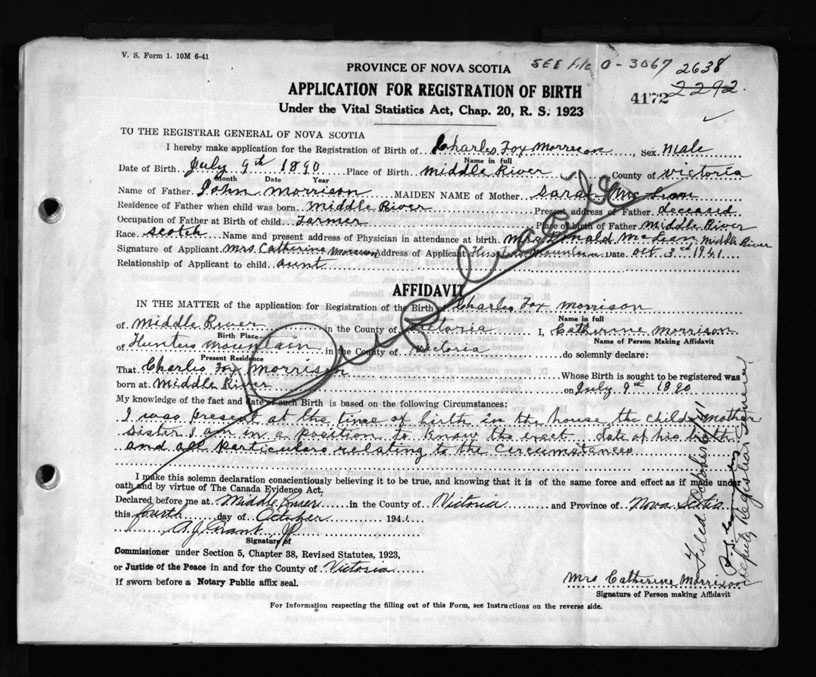 V. S. Form 1. 10M 6-41
PROVINCE OF NOVA SCOTIA
SEE File 0-3067
2638
APPLICATION FOR REGISTRATION OF BIRTH
4172
2292
Under the Vital Statistics Act, Chap. 20, R. S. 1923
TO THE REGISTRAR GENERAL OF NOVA SCOTIA
I hereby make application for the Registration of Birth of Charles Fox Morrison Sex Male
Name in full
Date of Birth July 9th 1890 Place of Birth Middle River County of Victoria
Month Date Year
Name of Father John Morrison MAIDEN NAME of Mother Sarah McLean
Residence of Father when child was born Middle River Present address of Father deceased
Occupation of Father at Birth of child Farmer Place of Birth of Father Middle River
Race Scotch Name and present address of Physician in attendance at birth Mrs Donald McLean Middle River
Signature of Applicant Mrs. Catherine Morrison Address of Applicant Hunters Mountain Date Oct 3rd 1941
Relationship of Applicant to child aunt
Duplicate
AFFIDAVIT
IN THE MATTER of the application for Registration of the Birth of Charles Fox Morrison
Name in full
of Middle River in the County of Victoria I, Catherine Morrison
Birth Place Name of Person Making Affidavit
of Hunters Mountain in the County of Victoria do solemnly declare:
Present Residence
That Charles Fox Morrison Whose Birth is sought to be registered was
born at Middle River on July 9th 1890
My knowledge of the fact and date of such Birth is based on the following Circumstances:
I was present at the time of birth in the house the childs mother
sister I am in a position to know the exact date of his birth
and all particulars relating to the circumstances
I make this solemn declaration conscientiously believing it to be true, and knowing that it is of the same force and effect as if made under
oath and by virtue of The Canada Evidence Act.
Declared before me at Middle River in the County of Victoria and Province of Nova Scotia
this fourth day of October 1941
A.J. Grant JP
Signature of
Commissioner under Section 5, Chapter 38, Revised Statutes, 1923,
or Justice of the Peace in and for the County of Victoria
If sworn before a Notary Public affix seal.
Mrs Catherine Morrison
Signature of Person making Affidavit
Filed October
Deputy Registrar General
For Information respecting the filling out of this Form, see Instructions on the reverse side.